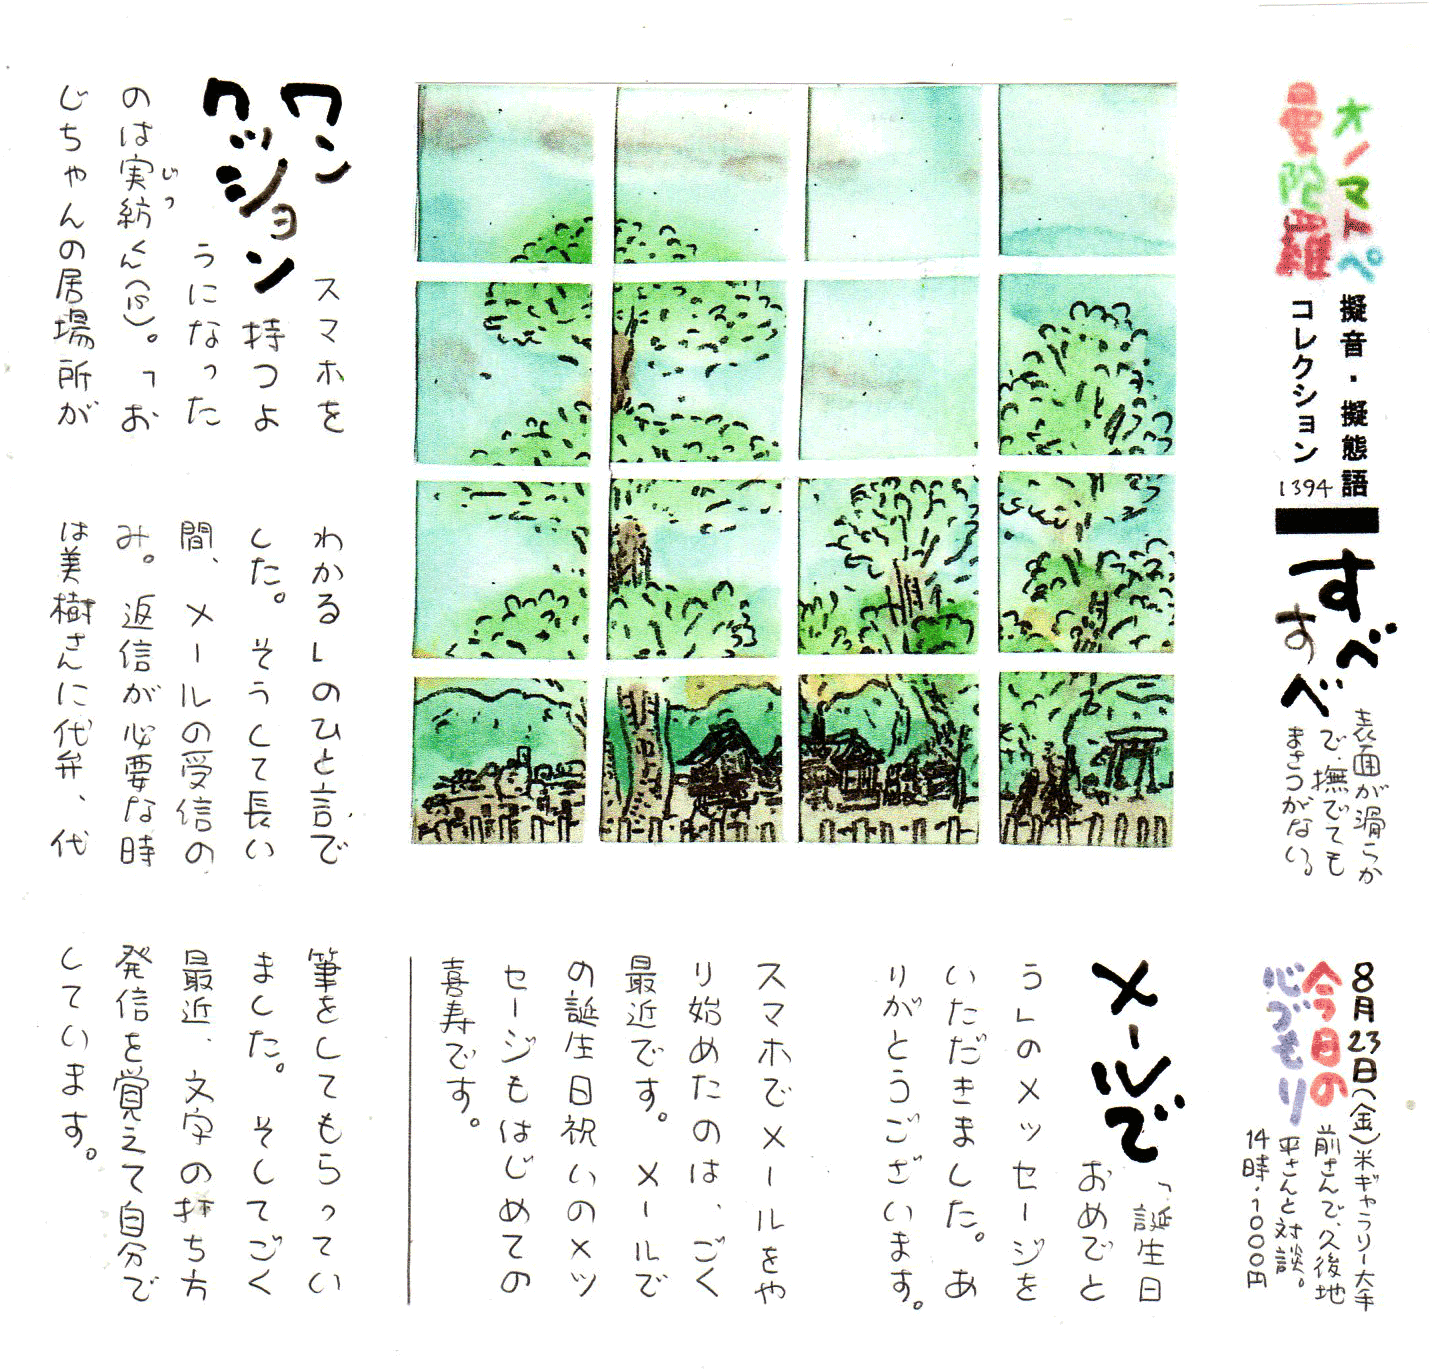 オノマトペ
曼陀羅
擬音・擬態語
コレクション
1394
すべ
すべ
表面が滑らか
で・撫でても
まさつがない。
8月23日(金)米ギャラリー大手
今日の
心づもり
前さんで、久後地
平さんと対談。
14時・1000円
メールで
「誕生日
おめでと
う」のメッセージを
いただきました。あ
りがとうございます。
スマホでメールをや
り始めたのは、ごく
最近です。メールで
の誕生日祝いのメッ
セージもはじめての
喜寿です。
ワン
クッション
スマホを
持つよ
うになった
のは実紡くん(15)。「お
じっ
じちゃんの居場所が
わかる」のひと言で
した。そうして長い
間、メールの受信の
み。返信が必要な時
は美樹さんに代弁、代
筆をしてもらってい
ました。そしてごく
最近、文字の打ち方
発信を覚えて自分で
しています。